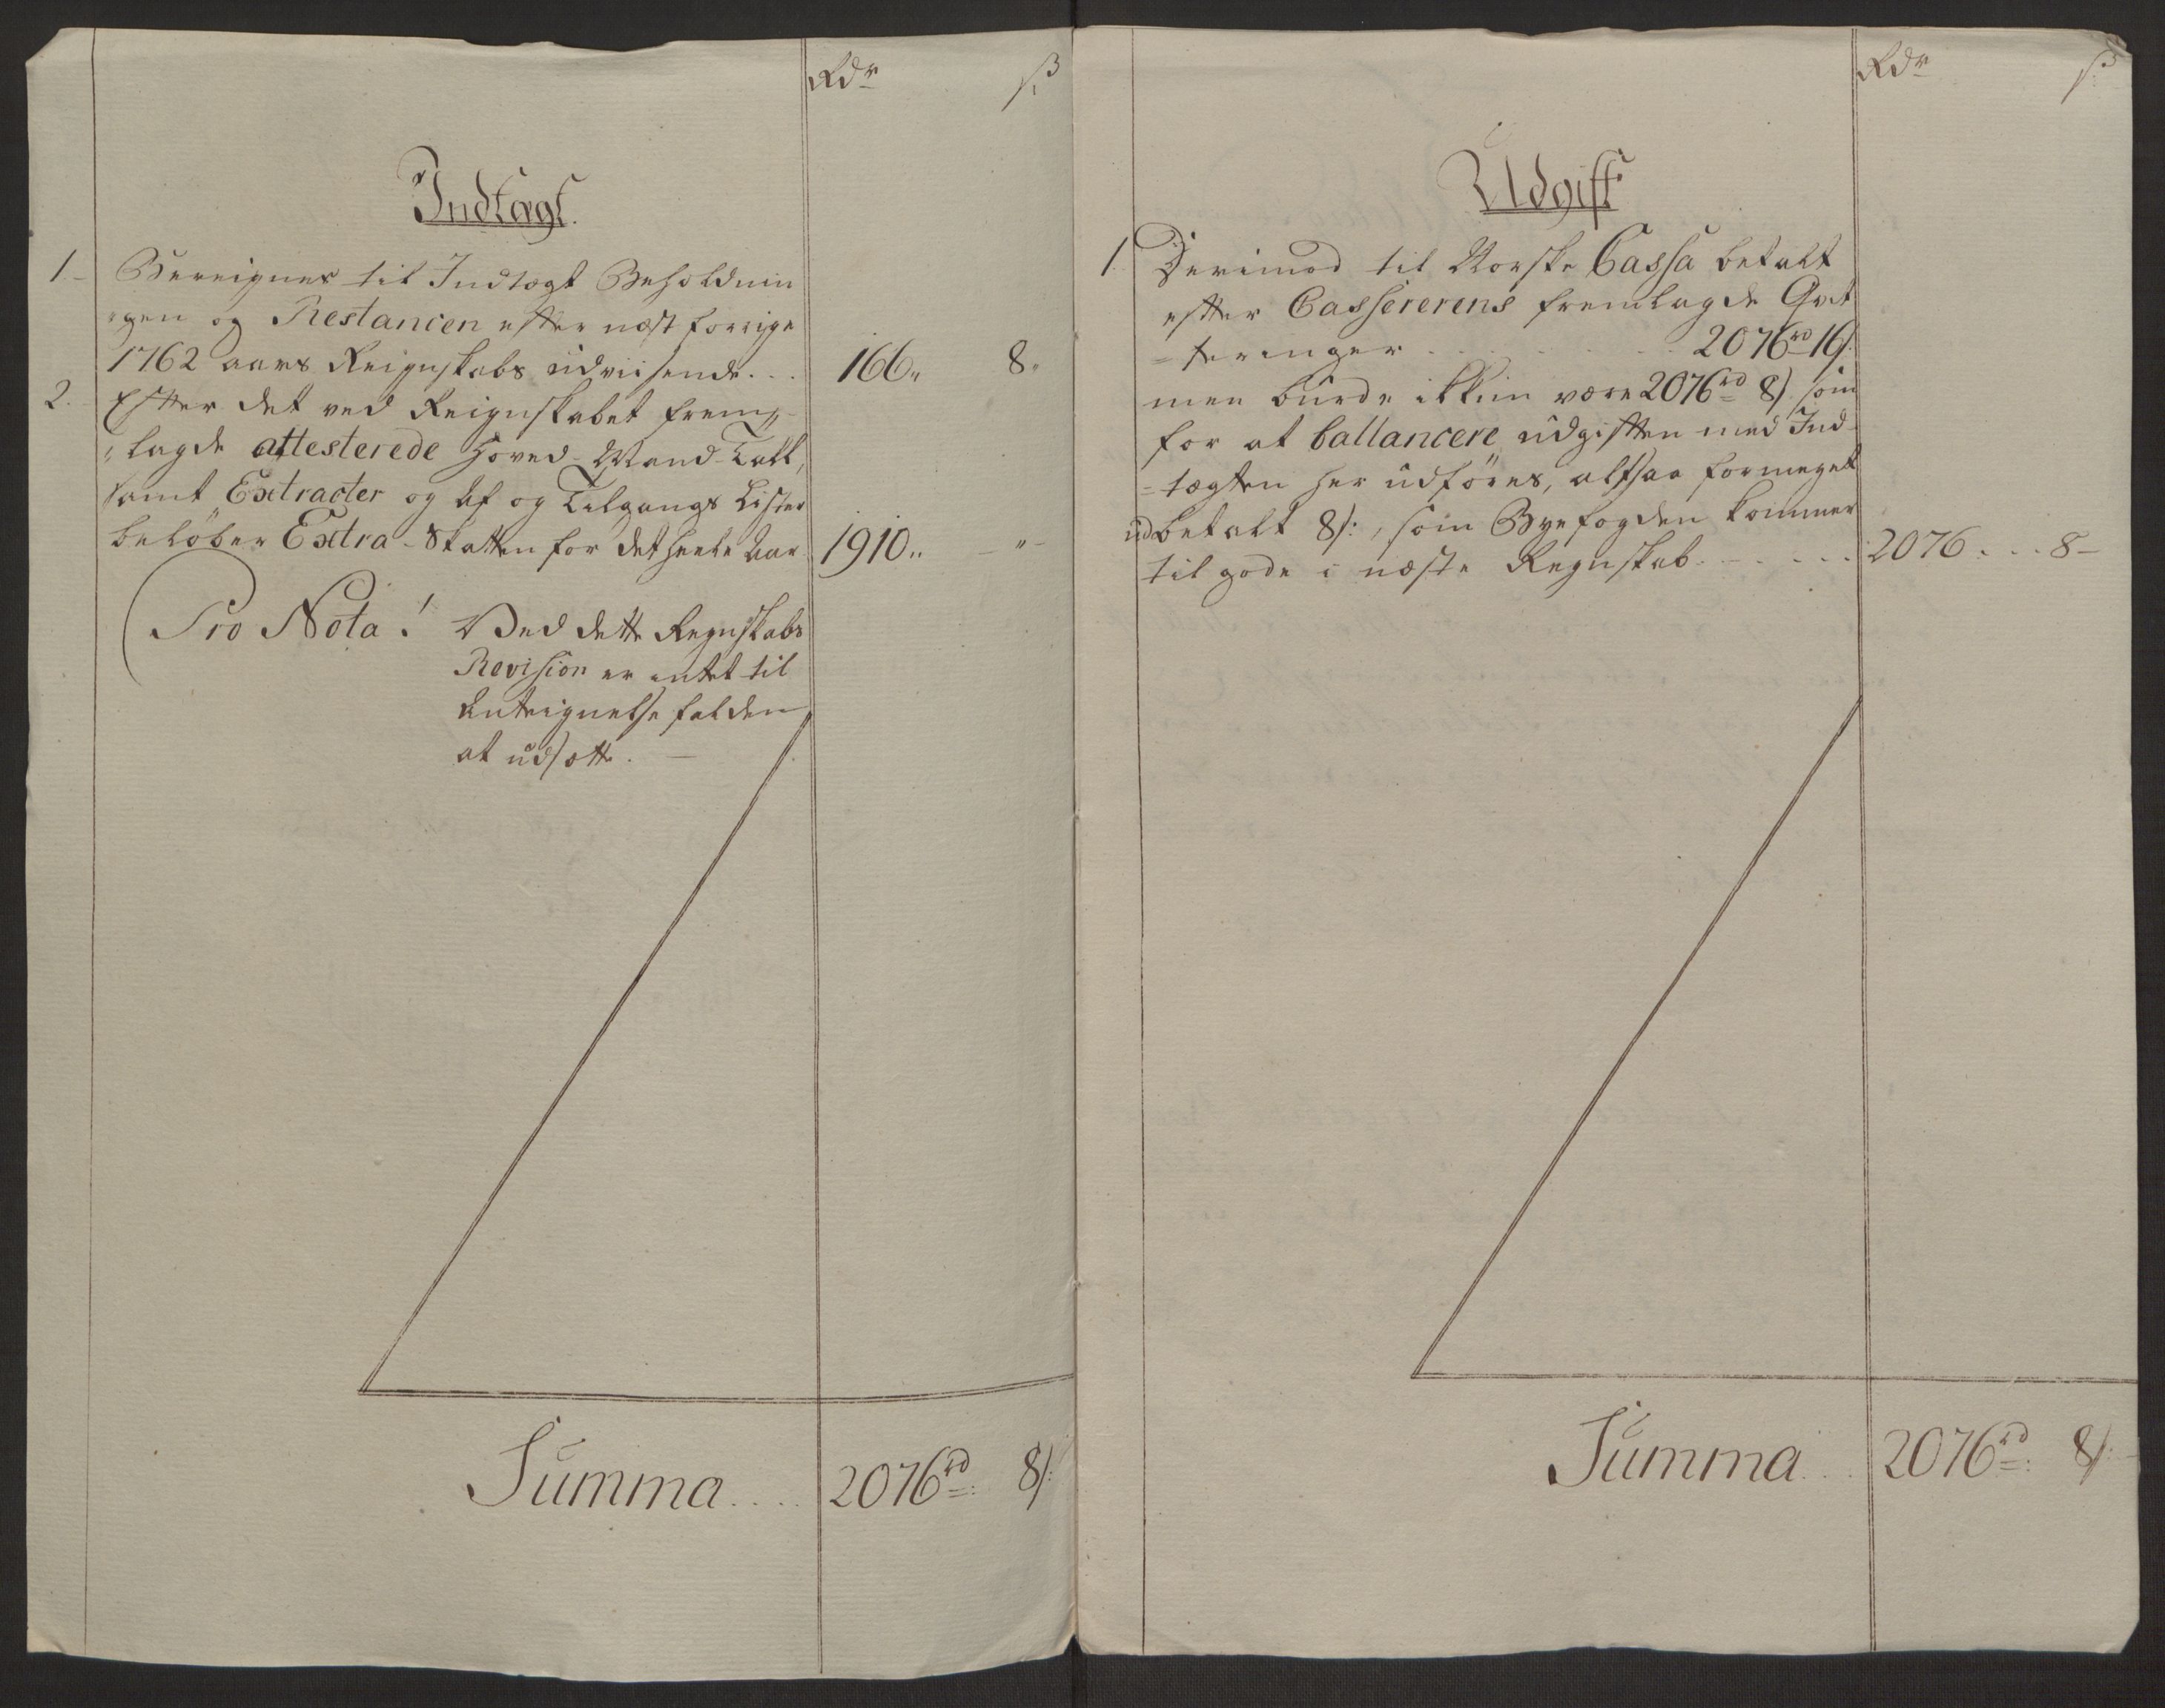 Rdr ß
Indtægt.
1. Bereignes til Indtægt Beholdnin
"gen og Restancen efter næst forrige
1762 aars Reignskabs udviisende... 166" 8"
2. Efter det ved Reignskabet frem„
„lagde attesterede Hoved-Mand-Tall,
samt Extracter og Af og Tilgangs Lister
beløber Extra-Skatten for det heele Aar 1910.. - " -
Pro Nota! Ved dette Regnskabs
Revision er intet til
Anteignelse falden
at udsætte. —
Summa.... 2076rd: 8ß:
Rdr ß
Udgift
1. Derimod til Norske Cassa betalt
efter Cassererens fremlagde Qvit
=teringer . . . . . 2076rd 16ß.
men burde ikkun være 2076rd 8ß. som
for at ballancere udgiften med Ind-
=tægten her udføres, altsaa formeget
udbetalt 8ß:, som Byefogden kommer
til gode i næste Regnskab. - . - . . . 2076 . . . 8 -
Summa . . 2076rd: 8ß: -